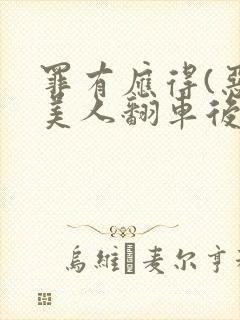 罪有應得(惡
美人翻車後
烏維·麦尔亨